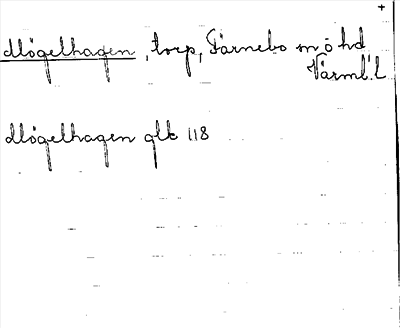 +
Mögelhagen, torp, Färnebo m o hd
Värml. l
Mögelhagen glk 118